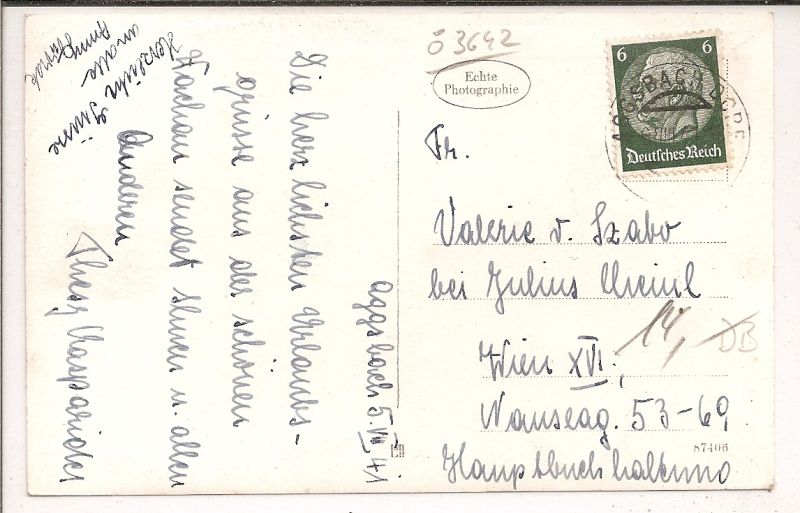 ö 3642
Echte
Photographie
6 6
AGGSBACH DORF
Deutsches Reich
Fr.
Valerie v. Szabo
bei Julius Meinl
14,
DB
Wien XVI.,
Nauseag. 53-69
Hauptbuchhaltung
87406
Aggsbach 5. VII 41
Die herzlichsten Urlaubs-
grüsse aus der schönen
Wachau sendet Ihnen u. allen
Anderen
Thesy
Herzliche Grüsse
an alle